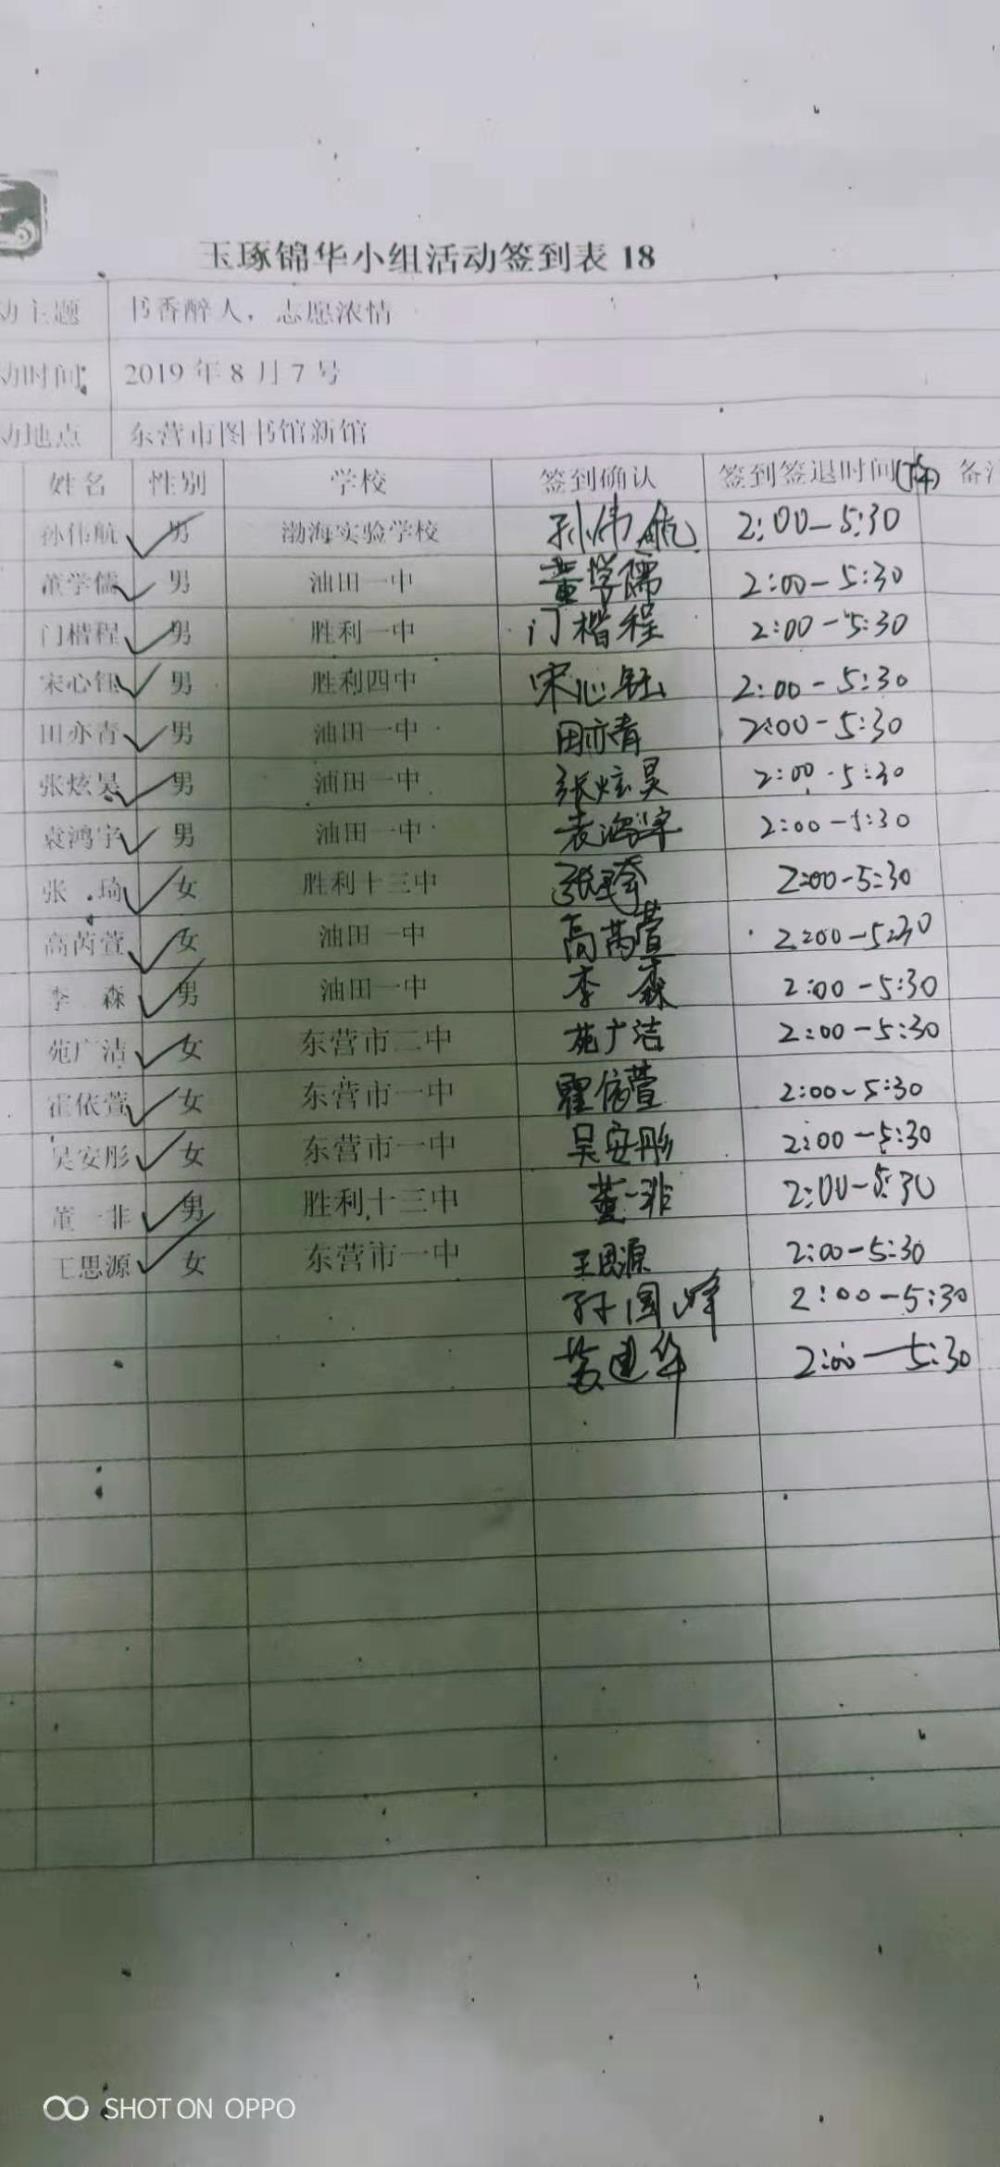 玉琢锦华小组活动签到表 18
动主题 书香醉人，志愿浓情
动时间: 2019 年 8 月 7 号
动地点 东营市图书馆新馆
姓名 性别 学校 签到确认 签到签退时间(下午) 备注
孙伟航 男 渤海实验学校 孙伟航 2:00-5:30
董学儒 男 油田一中 董学儒 2:00-5:30
门楷程 男 胜利一中 门楷程 2:00-5:30
宋心钰 男 胜利四中 宋心钰 2:00-5:30
田亦青 男 油田一中 田亦青 2:00-5:30
张炫昊 男 油田一中 张炫昊 2:00-5:30
袁鸿宇 男 油田一中 袁鸿宇 2:00-5:30
张琦 女 胜利十三中 张琦 2:00-5:30
高芮萱 女 油田一中 高芮萱 2:00-5:30
李森 男 油田一中 李森 2:00-5:30
苑广洁 女 东营市二中 苑广洁 2:00-5:30
霍依萱 女 东营市一中 霍依萱 2:00-5:30
吴安彤 女 东营市一中 吴安彤 2:00-5:30
董一非 男 胜利十三中 董一非 2:00-5:30
王思源 女 东营市一中 王思源 2:00-5:30
孙国峰 2:00-5:30
建华 2:00-5:30
SHOT ON OPPO